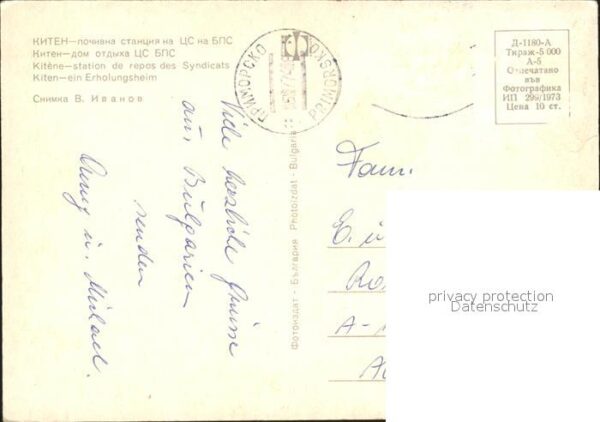 КИТЕН—почивна станция на ЦС на БПС
Китен—дом отдыха ЦС БПС
Kitène—station de repos des Syndicats
Kiten—ein Erholungsheim
Снимка В. Иванов
ПРИМОРСКО
PRIMORSKO
Д-1180-А
Тираж-5 000
А-5
Отпечатано
във
Фотографика
ИП 299/1973
Цена 10 ст.
Viele herzliche Grüsse
aus Bulgarien
senden
u. Michael.
Фотоиздат - България Photoizdat - Bulgaria
Fam.
E. u
A-
privacy protection
Datenschutz